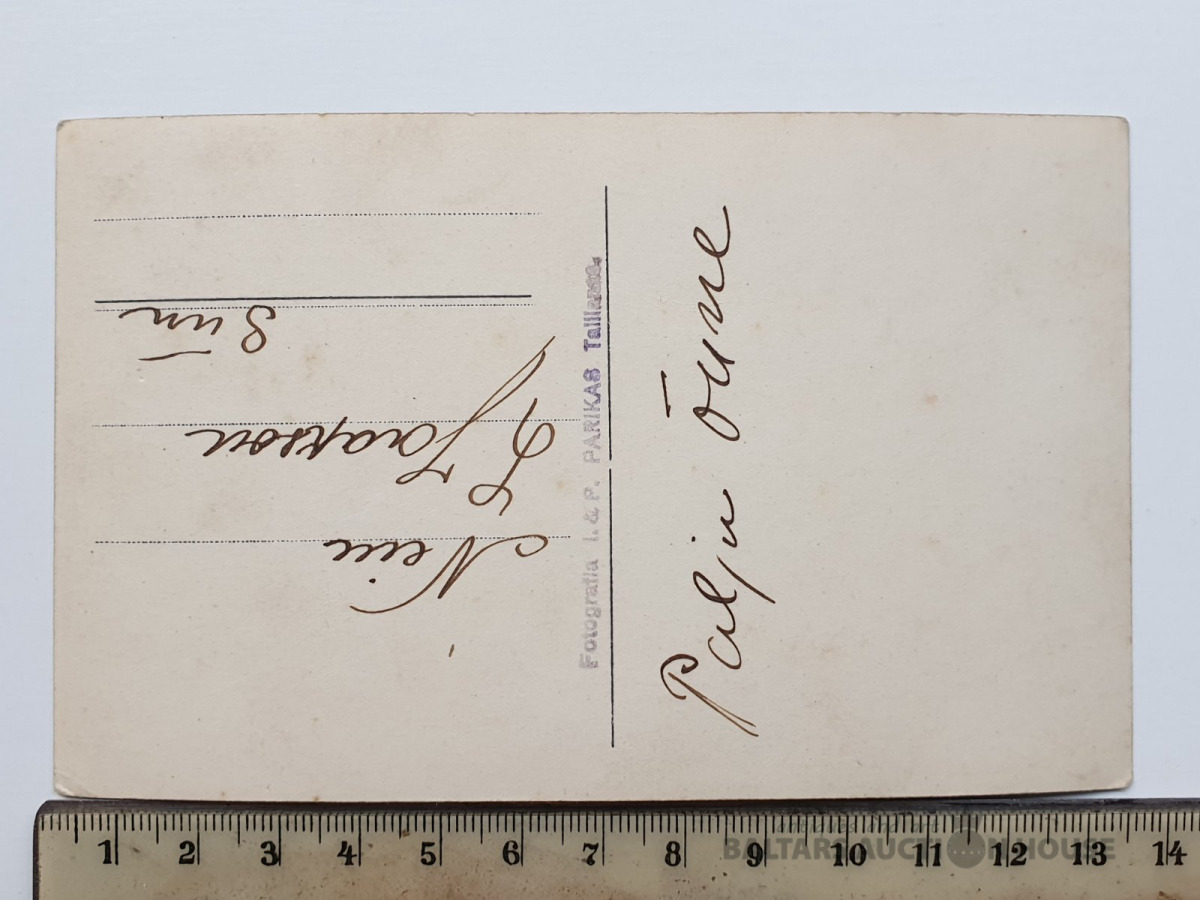 Neiu
E. Jaakson
Siin
Fotografia I. & P. PARIKAS Tallinnas.
Palju õnne
1 2 3 4 5 6 7 8 9 10 11 12 13 14
BALTARK AUCTION HOUSE